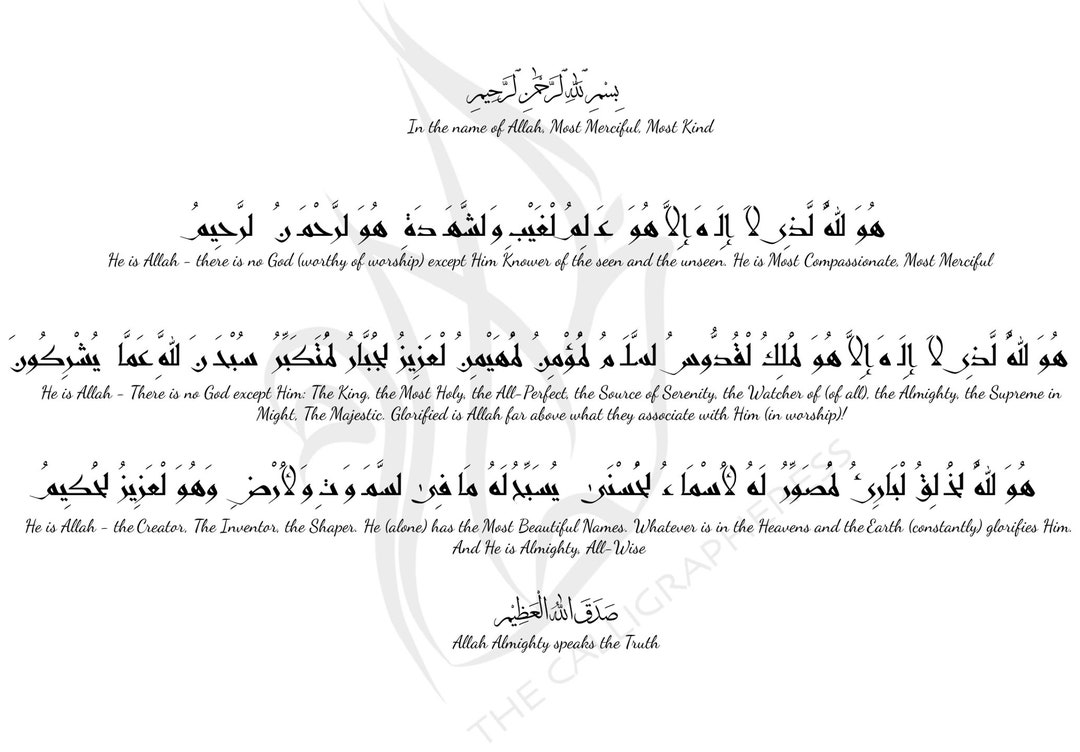 بِسْمِ ٱللَّهِ ٱلرَّحْمَٰنِ ٱلرَّحِيمِ
In the name of Allah, Most Merciful, Most Kind
هُوَ للَّهُ لَّذِى لَا إِلَـهَ إِلَّا هُوَ عَـلِمُ لْغَيْبِ وَلشَّهَـدَةِ هُوَ لرَّحْمَـنُ لرَّحِيمُ
He is Allah - there is no God (worthy of worship) except Him Knower of the seen and the unseen. He is Most Compassionate, Most Merciful
هُوَ للَّهُ لَّذِى لَا إِلَـهَ إِلَّا هُوَ لْمَلِكُ لْقُدُّوسُ لسَّلَـمُ لْمُؤْمِنُ لْمُهَيْمِنُ لْعَزِيزُ لْجَبَّارُ لْمُتَكَبِّرُ سُبْحَـنَ للَّهِ عَمَّا يُشْرِكُونَ
He is Allah - There is no God except Him: The King, the Most Holy, the All-Perfect, the Source of Serenity, the Watcher of (of all), the Almighty, the Supreme in
Might, The Majestic. Glorified is Allah far above what they associate with Him (in worship)!
هُوَ للَّهُ لْخَـلِقُ لْبَارِئُ لْمُصَوِّرُ لَهُ لْأَسْمَاءُ لْحُسْنَىٰ يُسَبِّحُ لَهُ مَا فِى لسَّمَـوَتِ وَلْأَرْضِ وَهُوَ لْعَزِيزُ لْحَكِيمُ
He is Allah - the Creator, The Inventor, the Shaper. He (alone) has the Most Beautiful Names. Whatever is in the Heavens and the Earth (constantly) glorifies Him.
And He is Almighty, All-Wise
صَدَقَ اللهُ الْعَظِيْمِ
Allah Almighty speaks the Truth
THE CALLIGRAPHPRESS